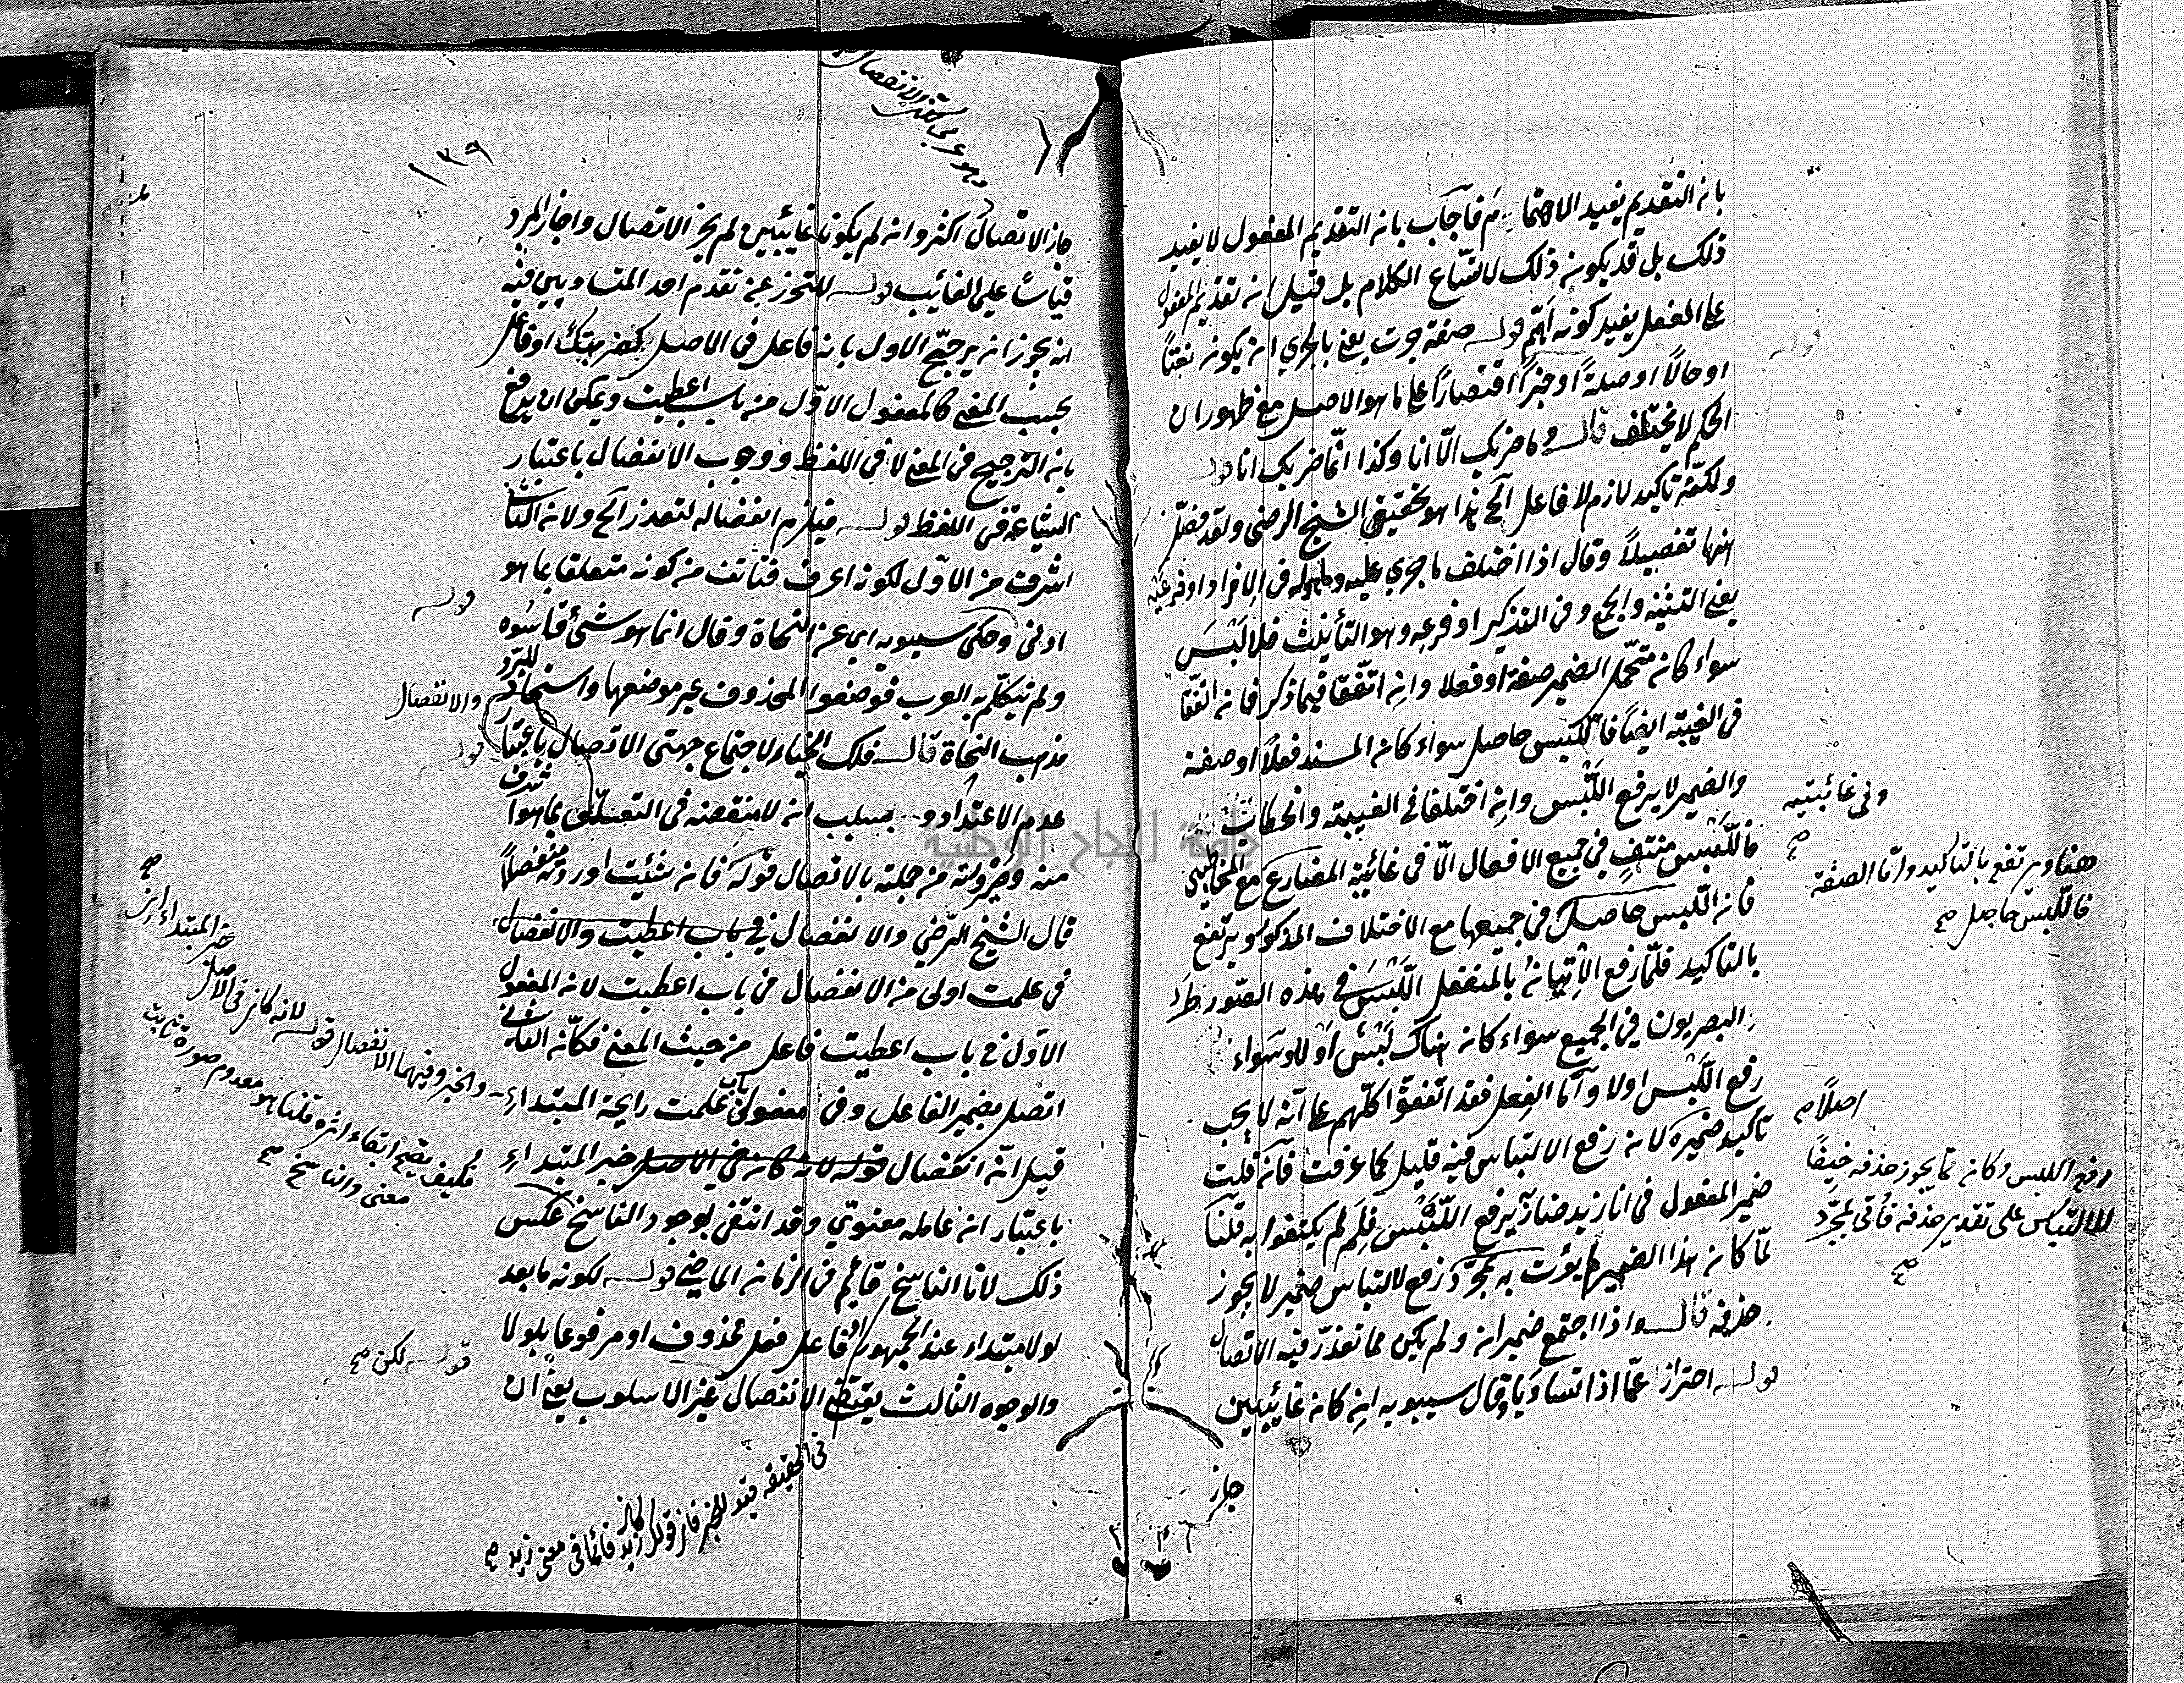 بان التقديم يفيد الاهتمام فاجاب بان التقديم المفعول لا يفيد
ذلك بل قد يكون ذلك لاتساع الكلام بل قيل ان تقديم المفعول
على الفعل يفيد كونه اهم قوله صفة جرت يعني بالجري ان يكون نعتاً
او حالاً او صلةً او خبراً اقتصاراً على ما هو الاصل مع ظهور ان
الحكم لا يختلف قال وما ضربك الّا انا وكذا انّما ضربك انا قوله
ولكنّه تاكيد لازم لا فاعل الخ هذا هو تحقيق الشيخ الرضي ولقد فصّل
ههنا تفصيلاً وقال اذا اختلف ما جرى عليه وما هو له في الافراد او فرعيه
يعني التثنية والجمع وفي التذكير او فرعه وهو التأنيث فلا لَبْسَ
سواء كان متحمّل الضمير صفة او فعلا وان اتّفقا فيما ذكر فان اتّفقا
في الغيبة ايضاً فاللّبس حاصل سواء كان المسند فعلاً او صفة
والضمير لا يرفع اللّبس وان اختلفا في الغيبة والخطاب
فاللّبس منتفٍ في جميع الافعال الّا في غائبة المضارع مع المخاطب
فان اللّبس حاصل في جميعها مع الاختلاف المذكور ويرتفع
بالتاكيد فلمّا رفع الاتيانُ بالمنفصل اللّبسَ في هذه الصّور طرد
البصريون في الجميع سواء كان هناك لَبْسٌ او لا وسواء
رفع اللّبس او لا وامّا الفعل فقد اتّفقوا كلّهم على انّه لا يجب
تاكيد ضميره لان رفع الالتباس فيه قليل كما عرفت فان قلت
ضمير المفعول في انا زيد ضاربه يرفع اللّبس فلِمَ لم يكتفوا به قلنا
لمّا كان هذا الضمير لم يؤت به لمجرّد رفع الالتباس ضمير لا يجوز
حذفه قال واذا اجتمع ضميران ولم يكن مما تعذّر فيه الاتصال
قوله احتراز عمّا اذا تساويا وقال سيبويه ان كانا غائبين
جاز
قوله
وفي غائبتيه
صح
هنا ويرتفع بالتاكيد وامّا الصفة
فاللّبس حاصل صح
اصلاً صح
رفع اللبس وكان مما يجوز حذفه خيفاً
للالتباس على تقدير حذفه فأتي لمجرّد
صح
١٣٩
وهو عربي لكن الانفصال
جاز الاتصال اكثر وان لم يكونا غائبين لم يجز الاتصال واجاز المبرد
قياساً على الغائب قوله للتحرز عن تقدم احد المتساويين فيه
انه يجوز ان يرجّح الاول بانه فاعل في الاصل كضربتك او فاعل
بحسب المعنى كالمفعول الاوّل من باب اعطيت ويمكن ان يدفع
بان الترجيح في المعنى لا في اللفظ ووجوب الانفصال باعتبار
الشناعة في اللفظ قوله فيلزم انفصاله لتعذر الخ ولان الثاني
اشرف من الاوّل لكونه اعرف فتانف من كونه متعلقا بما هو
ادنى وحكى سيبويه اي عن النحاة وقال انما هو شئ قاسُوه
ولم تتكلّم به العرب فوضعوا الحروف غير موضعها واستجاد المبرّد
مذهب النحاة قال فلك الخيار لاجتماع جهتي الاتصال باعتبار
عدم الاعتداد و بسبب انه لا منقصة في التعلّق بما هو اشرف
منه وصيرورته من جملته بالاتصال قوله فان شئت اوردته منفصلاً
قال الشيخ الرّضي والانفصال في باب اعطيت والانفصال
في علمت اولى من الانفصال في باب اعطيت لان المفعول
الاوّل في باب اعطيت فاعل من حيث المعنى فكانّه الثاني
اتصل بضمير الفاعل وفي مفعولي باب علمت رايحة المبتداء
قيل انّه انفصال قوله لانه كان في الاصل خبر المبتداء
باعتبار ان عامله معنويّ وقد انتفى بوجود الناسخ عكس
ذلك لانا الناسخ قائم في الزمان الماضي قوله لكونه ما بعد
لولا مبتداء عند الجمهور او فاعل فعل محذوف او مرفوعا بلولا
والوجوه الثالث يقتضي الانفصال غيّر الاسلوب يعني ان
قوله
والانفصال
قوله
والخبر وفيهما الانفصال قوله لانه كان في الاصل خبر المبتداء
صح
فكيف يصح ابقاء اثره قلنا هو معدوم صورة ثابت
معنى والناسخ صح
قوله لكن صح
في الحقيقة قيد للخبر فان قولك كان
زيد قائما في معنى زيد صح